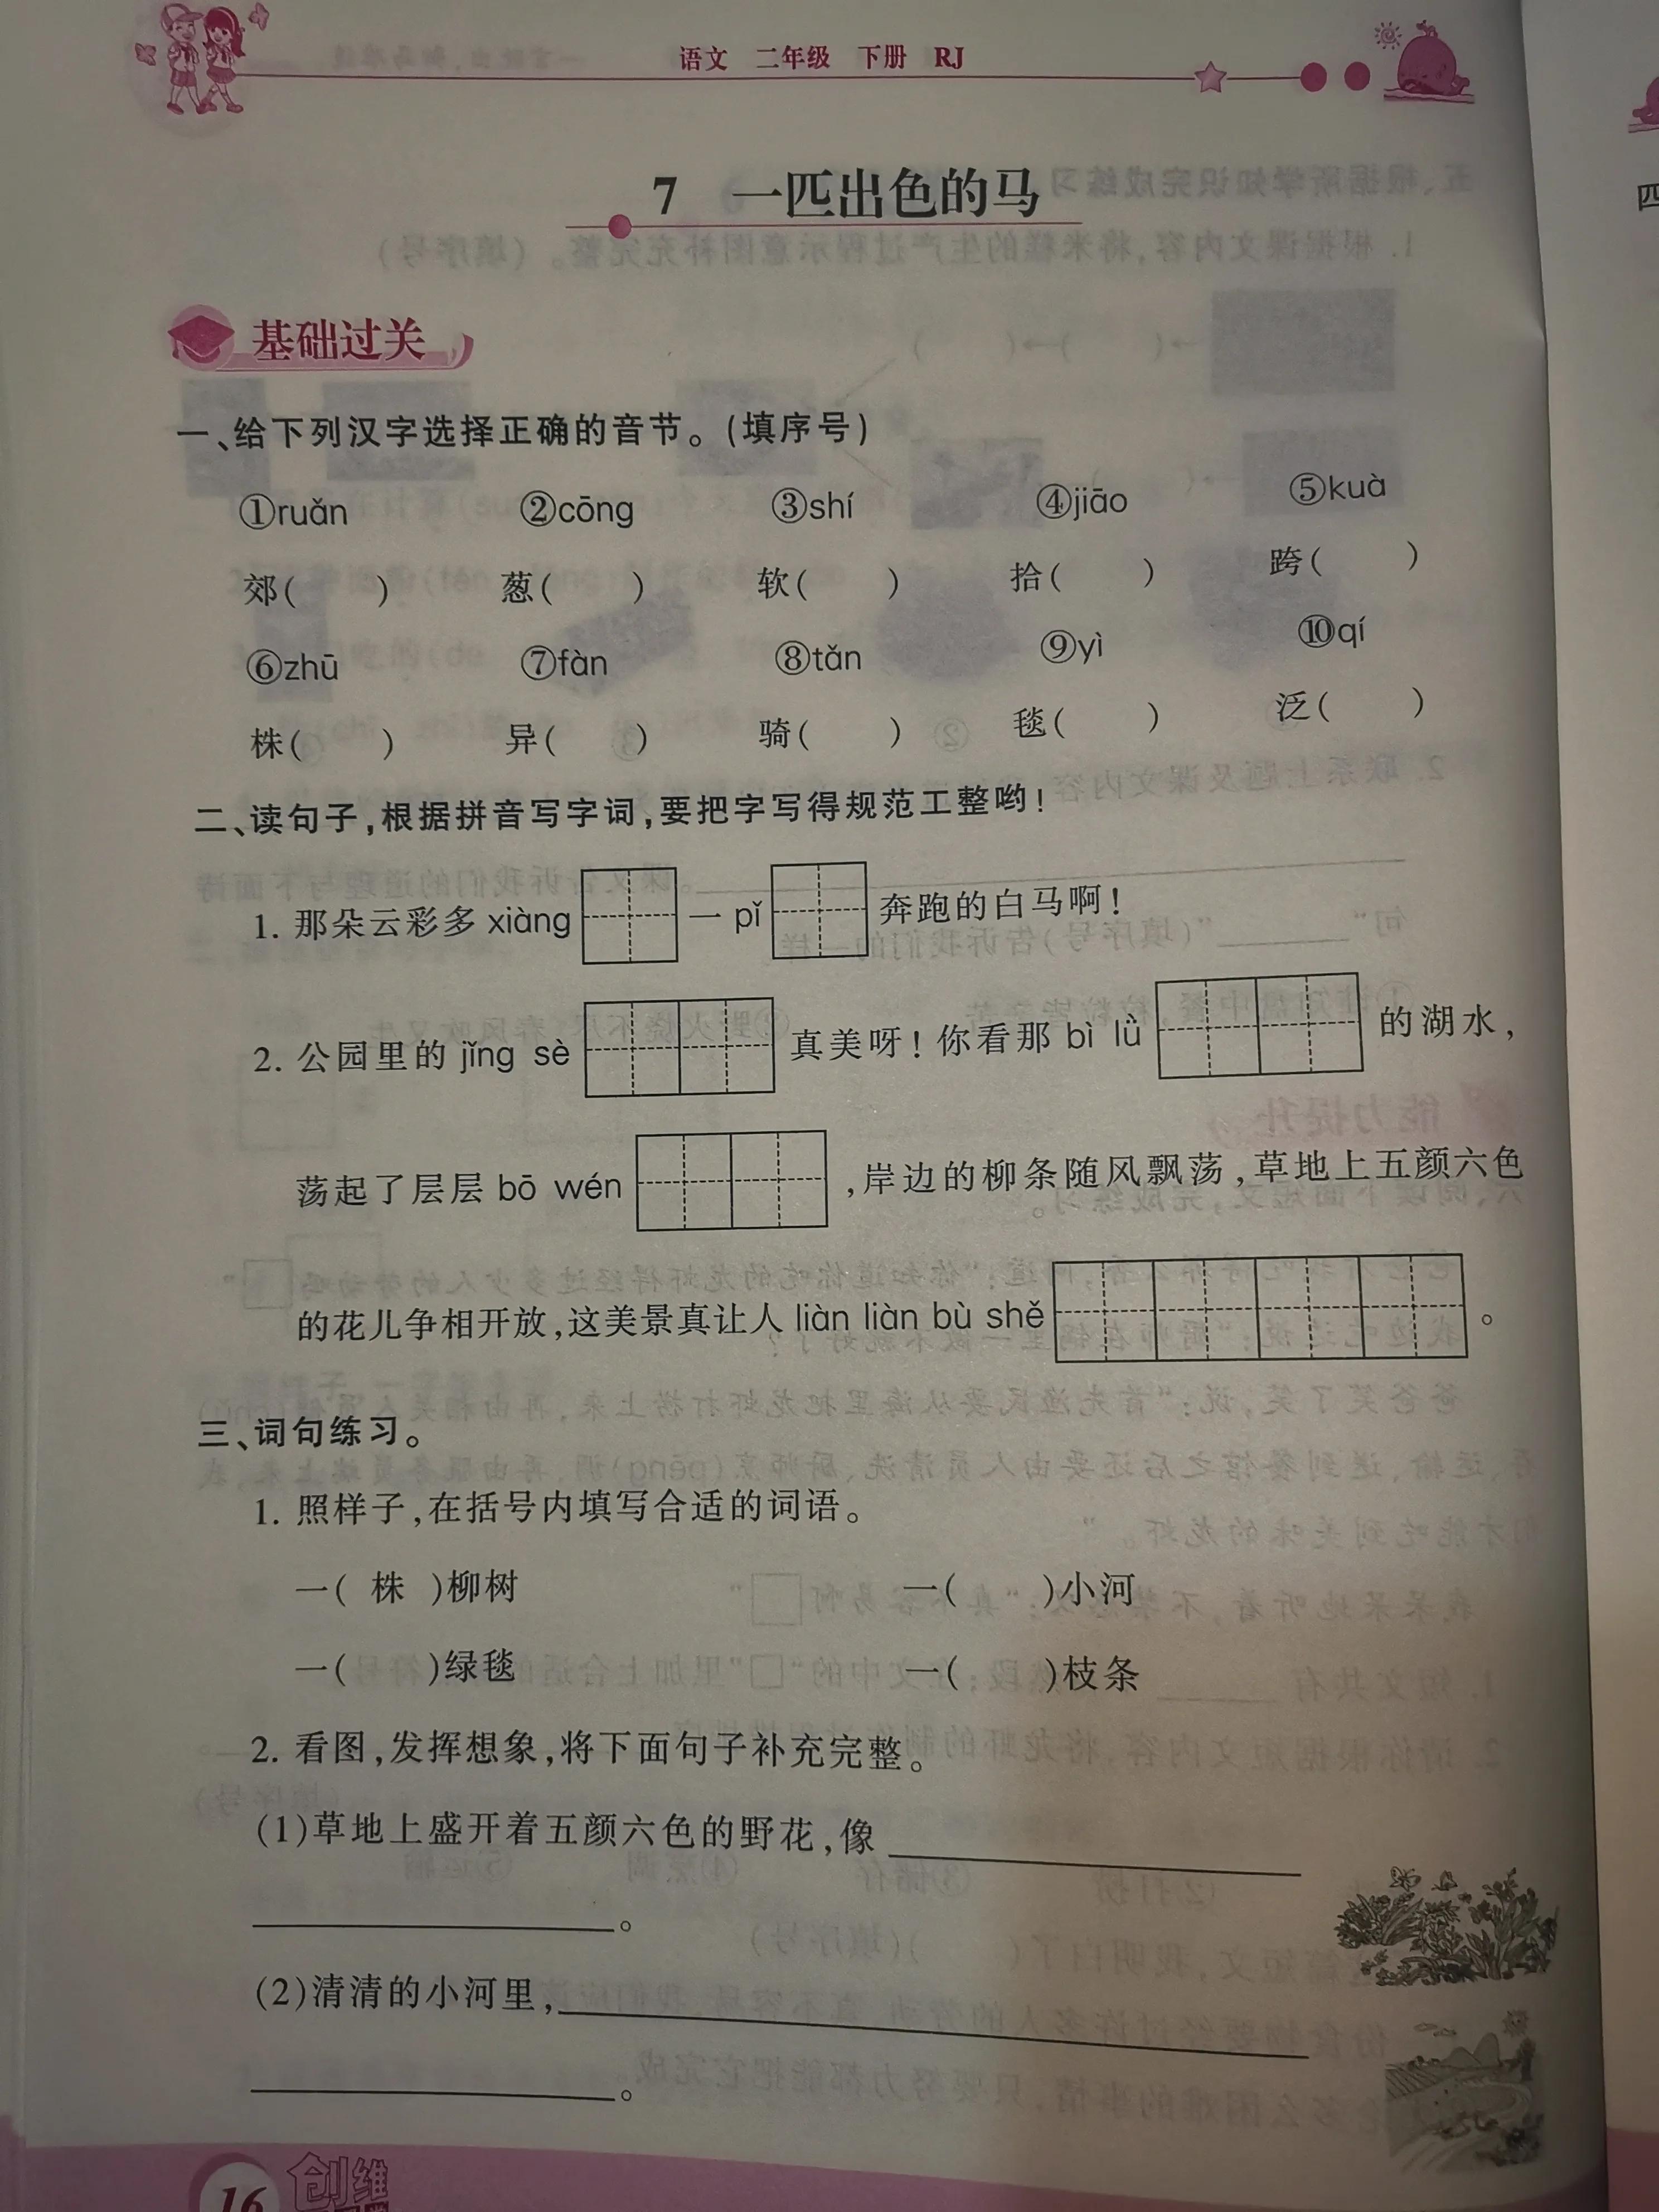 语文 二年级 下册 RJ
7 一匹出色的马
基础过关
一、给下列汉字选择正确的音节。(填序号)
①ruǎn ②cōng ③shí ④jiāo ⑤kuà
郊( ) 葱( ) 软( ) 拾( ) 跨( )
⑥zhū ⑦fàn ⑧tǎn ⑨yì ⑩qí
株( ) 异( ) 骑( ) 毯( ) 泛( )
二、读句子,根据拼音写字词,要把字写得规范工整哟!
1. 那朵云彩多 xiàng 一 pǐ 奔跑的白马啊!
2. 公园里的 jǐng sè 真美呀!你看那 bì lǜ 的湖水,
荡起了层层 bō wén ,岸边的柳条随风飘荡,草地上五颜六色
的花儿争相开放,这美景真让人 liàn liàn bù shě 。
三、词句练习。
1. 照样子,在括号内填写合适的词语。
一( 株 )柳树 一( )小河
一( )绿毯 一( )枝条
2. 看图,发挥想象,将下面句子补充完整。
(1)草地上盛开着五颜六色的野花,像
。
(2)清清的小河里,
。
16 创维